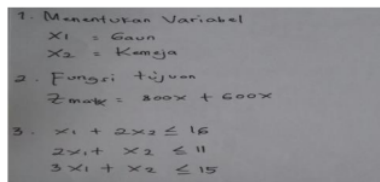 1. Menentukan Variabel
X1 = Gaun
X2 = Kemeja
2. Fungsi tujuan
Z mak = 800x + 600x
3. x1 + 2x2 ≤ 16
2x1 + x2 ≤ 11
3x1 + x2 ≤ 15